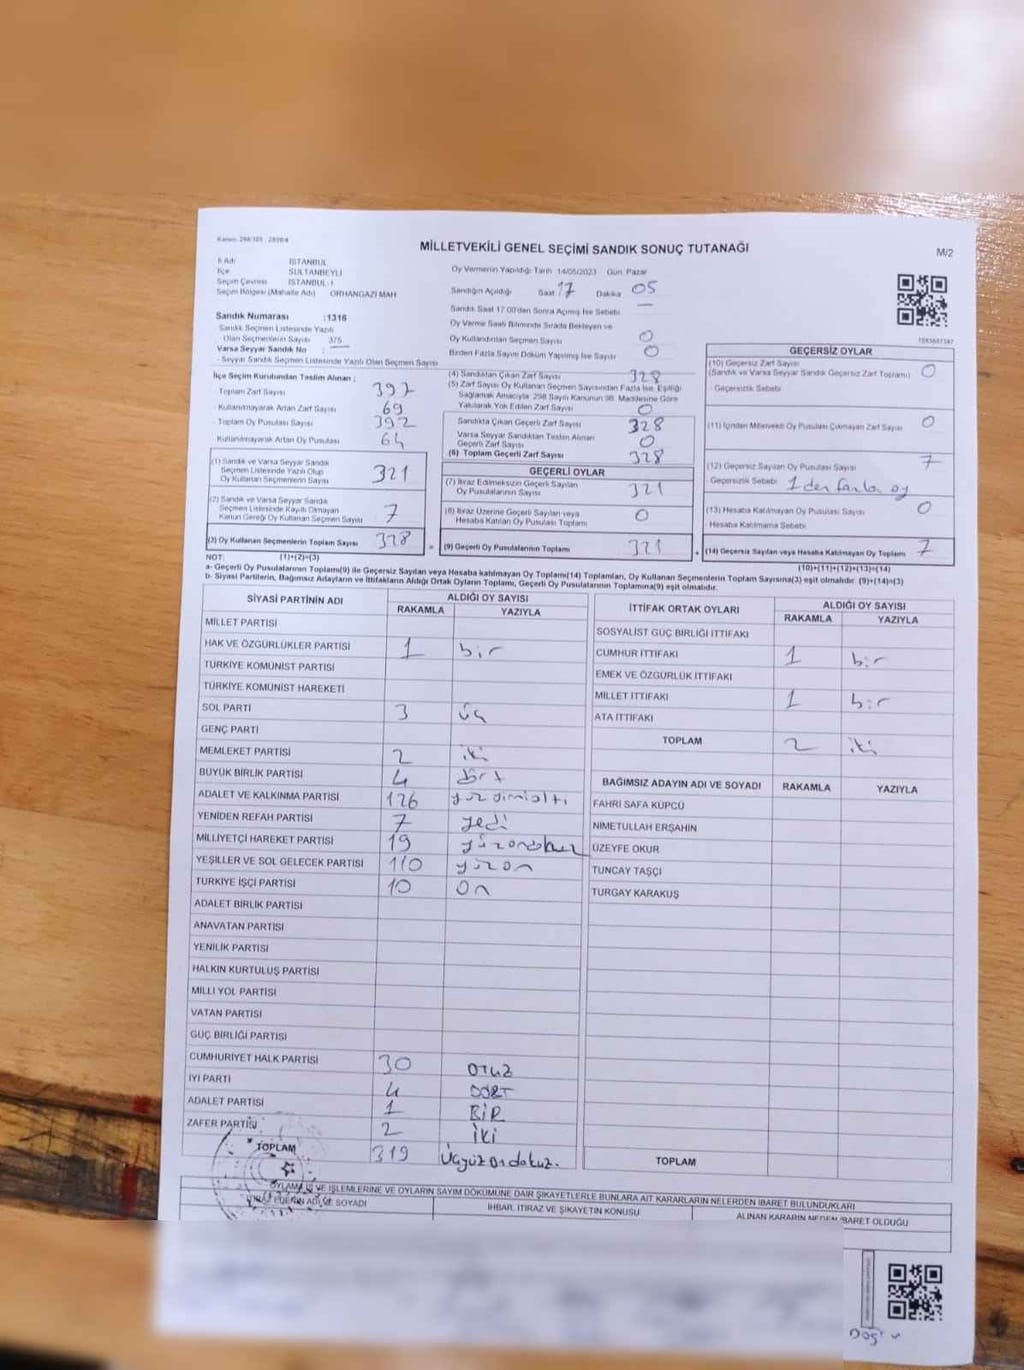 Kanun: 298/105 - 2839/4
MİLLETVEKİLİ GENEL SEÇİMİ SANDIK SONUÇ TUTANAĞI
M/2
İl Adı : İSTANBUL
İlçe : SULTANBEYLİ
Seçim Çevresi : İSTANBUL-1
Seçim Bölgesi (Mahalle Adı) : ORHANGAZİ MAH
Oy Vermenin Yapıldığı Tarih 14/05/2023 Gün Pazar
Sandığın Açıldığı Saat 17 Dakika 05
Sandık Saat 17:00'den Sonra Açılmış İse Sebebi —
Oy Verme Saati Bitiminde Sırada Bekleyen ve
Oy Kullandırılan Seçmen Sayısı 0
Birden Fazla Sayım Döküm Yapılmış İse Sayısı 0
Sandık Numarası :1316
Sandık Seçmen Listesinde Yazılı
Olan Seçmenlerin Sayısı 375
Varsa Seyyar Sandık No : —
- Seyyar Sandık Seçmen Listesinde Yazılı Olan Seçmen Sayısı
İlçe Seçim Kurulundan Teslim Alınan ;
- Toplam Zarf Sayısı 397
- Kullanılmayarak Artan Zarf Sayısı 69
- Toplam Oy Pusulası Sayısı 392
- Kullanılmayarak Artan Oy Pusulası 64
(1) Sandık ve Varsa Seyyar Sandık
Seçmen Listesinde Yazılı Olup
Oy Kullanan Seçmenlerin Sayısı 321
(2) Sandık ve Varsa Seyyar Sandık
Seçmen Listesinde Kayıtlı Olmayan
Kanun Gereği Oy Kullanan Seçmen Sayısı 7
(3) Oy Kullanan Seçmenlerin Toplam Sayısı 328
(4) Sandıktan Çıkan Zarf Sayısı 328
(5) Zarf Sayısı Oy Kullanan Seçmen Sayısından Fazla İse, Eşitliği
Sağlamak Amacıyla 298 Sayılı Kanunun 98. Maddesine Göre
Yakılarak Yok Edilen Zarf Sayısı 0
Sandıkta Çıkan Geçerli Zarf Sayısı 328
Varsa Seyyar Sandıktan Teslim Alınan
Geçerli Zarf Sayısı 0
(6) Toplam Geçerli Zarf Sayısı 328
GEÇERLİ OYLAR
(7) İtiraz Edilmeksizin Geçerli Sayılan
Oy Pusulalarının Sayısı 321
(8) İtiraz Üzerine Geçerli Sayılan veya
Hesaba Katılan Oy Pusulası Toplamı 0
= (9) Geçerli Oy Pusulalarının Toplamı 321
GEÇERSİZ OYLAR
(10) Geçersiz Zarf Sayısı 0
(Sandık ve Varsa Seyyar Sandık Geçersiz Zarf Toplamı)
- Geçersizlik Sebebi
(11) İçinden Milletvekili Oy Pusulası Çıkmayan Zarf Sayısı 0
(12) Geçersiz Sayılan Oy Pusulası Sayısı 7
Geçersizlik Sebebi 1 den fazla oy
(13) Hesaba Katılmayan Oy Pusulası Sayısı 0
- Hesaba Katılmama Sebebi
+ (14) Geçersiz Sayılan veya Hesaba Katılmayan Oy Toplamı 7
NOT: (1)+(2)=(3)
(10)+(11)+(12)+(13)=(14)
a- Geçerli Oy Pusulalarının Toplamı(9) ile Geçersiz Sayılan veya Hesaba katılmayan Oy Toplamı(14) Toplamları, Oy Kullanan Seçmenlerin Toplam Sayısına(3) eşit olmalıdır. (9)+(14)=(3)
b- Siyasi Partilerin, Bağımsız Adayların ve İttifakların Aldığı Ortak Oyların Toplamı, Geçerli Oy Pusulalarının Toplamına(9) eşit olmalıdır.
SİYASİ PARTİNİN ADI ALDIĞI OY SAYISI
RAKAMLA YAZIYLA
MİLLET PARTİSİ
HAK VE ÖZGÜRLÜKLER PARTİSİ 1 bir
TÜRKİYE KOMÜNİST PARTİSİ
TÜRKİYE KOMÜNİST HAREKETİ
SOL PARTİ 3 üç
GENÇ PARTİ
MEMLEKET PARTİSİ 2 iki
BÜYÜK BİRLİK PARTİSİ 4 dört
ADALET VE KALKINMA PARTİSİ 126 yüzyirmialtı
YENİDEN REFAH PARTİSİ 7 yedi
MİLLİYETÇİ HAREKET PARTİSİ 19 yüzondokuz
YEŞİLLER VE SOL GELECEK PARTİSİ 110 yüzon
TÜRKİYE İŞÇİ PARTİSİ 10 On
ADALET BİRLİK PARTİSİ
ANAVATAN PARTİSİ
YENİLİK PARTİSİ
HALKIN KURTULUŞ PARTİSİ
MİLLİ YOL PARTİSİ
VATAN PARTİSİ
GÜÇ BİRLİĞİ PARTİSİ
CUMHURİYET HALK PARTİSİ 30 OTUZ
İYİ PARTİ 4 DÖRT
ADALET PARTİSİ 1 BİR
ZAFER PARTİSİ 2 İKİ
TOPLAM 319 Üçyüzondokuz.
İTTİFAK ORTAK OYLARI ALDIĞI OY SAYISI
RAKAMLA YAZIYLA
SOSYALİST GÜÇ BİRLİĞİ İTTİFAKI
CUMHUR İTTİFAKI 1 bir
EMEK VE ÖZGÜRLÜK İTTİFAKI
MİLLET İTTİFAKI 1 bir
ATA İTTİFAKI
TOPLAM 2 iki
BAĞIMSIZ ADAYIN ADI VE SOYADI RAKAMLA YAZIYLA
FAHRİ SAFA KÜPCÜ
NİMETULLAH ERŞAHİN
ÜZEYFE OKUR
TUNCAY TAŞÇI
TURGAY KARAKUŞ
TOPLAM
OYLAMA İŞ VE İŞLEMLERİNE VE OYLARIN SAYIM DÖKÜMÜNE DAİR ŞİKAYETLERLE BUNLARA AİT KARARLARIN NELERDEN İBARET BULUNDUKLARI
İTİRAZ EDENİN ADI VE SOYADI
İHBAR, İTİRAZ VE ŞİKAYETİN KONUSU
ALINAN KARARIN NEDEN İBARET OLDUĞU